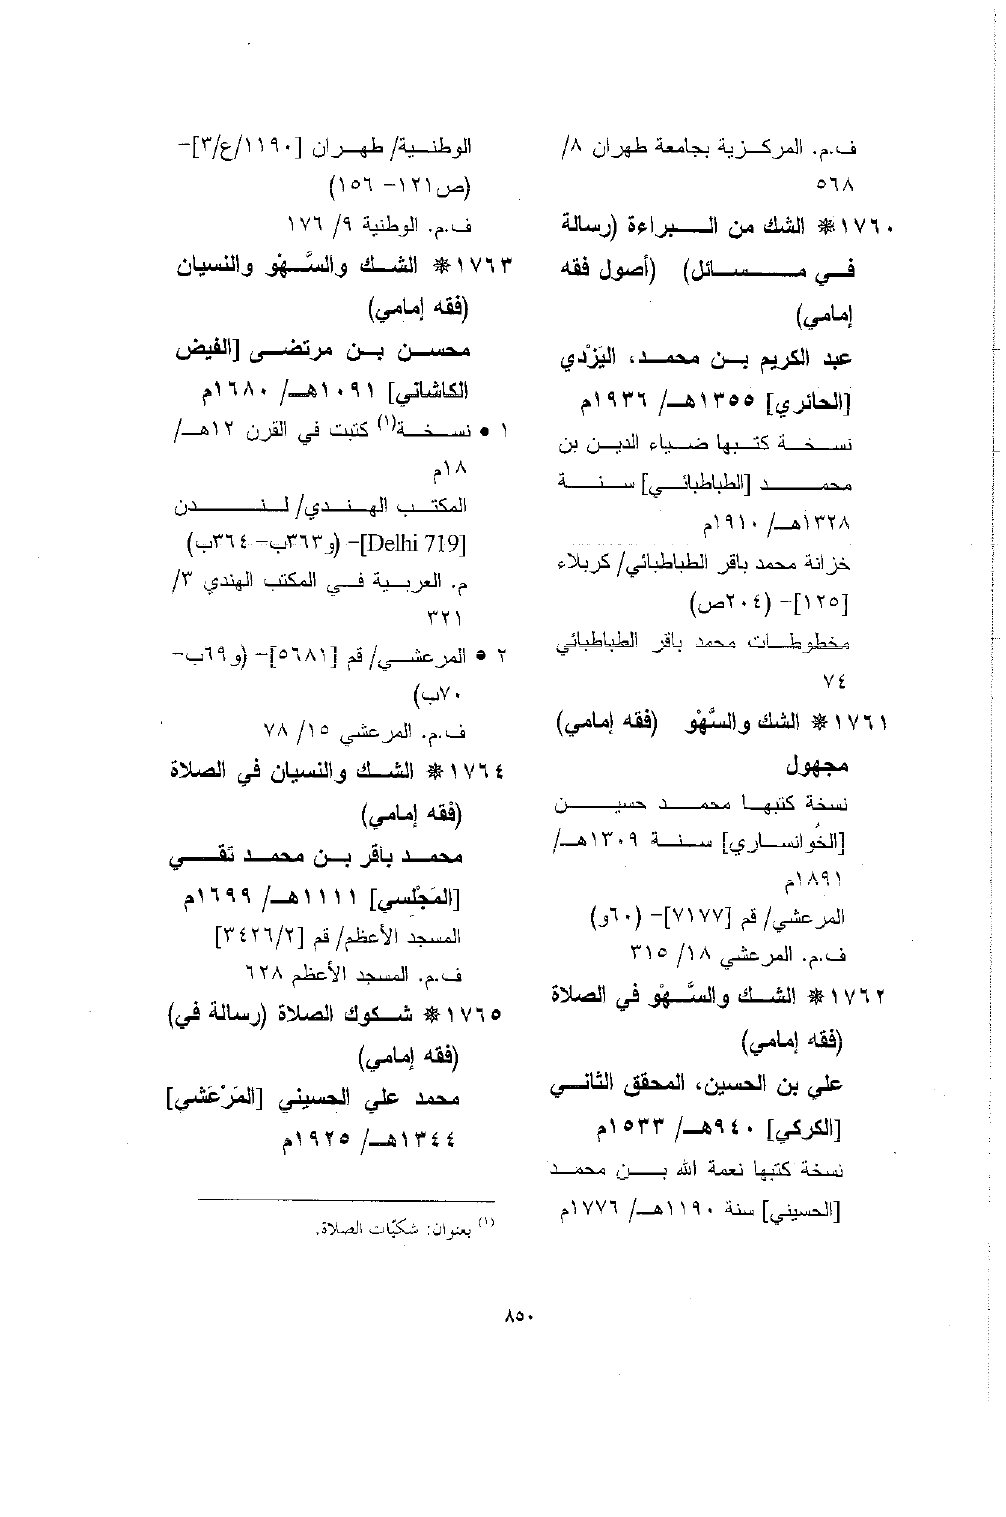 ف.م. المركزية بجامعة طهران ٨/
٥٦٨
١٧٦٠❋ الشك من البراءة (رسالة
في مسائل) (أصول فقه
إمامي)
عبد الكريم بن محمد، اليَزْدي
[الحائري] ١٣٥٥هـ/ ١٩٣٦م
نسخة كتبها ضياء الدين بن
محمد [الطباطبائي] سنة
١٣٢٨هـ/ ١٩١٠م
خزانة محمد باقر الطباطبائي/ كربلاء
[١٢٥]- (٢٠٤ص)
مخطوطات محمد باقر الطباطبائي
٧٤
١٧٦١❋ الشك والسَّهْو (فقه إمامي)
مجهول
نسخة كتبها محمد حسين
[الخُوانساري] سنة ١٣٠٩هـ/
١٨٩١م
المرعشي/ قم [٧١٧٧]- (٦٠و)
ف.م. المرعشي ١٨/ ٣١٥
١٧٦٢❋ الشك والسَّهْو في الصلاة
(فقه إمامي)
علي بن الحسين، المحقق الثاني
[الكركي] ٩٤٠هـ/ ١٥٣٣م
نسخة كتبها نعمة الله بن محمد
[الحسيني] سنة ١١٩٠هـ/ ١٧٧٦م
الوطنية/ طهران [١١٩٠/ع/٣]-
(ص١٢١- ١٥٦)
ف.م. الوطنية ٩/ ١٧٦
١٧٦٣❋ الشك والسَّهْو والنسيان
(فقه إمامي)
محسن بن مرتضى [الفيض
الكاشاني] ١٠٩١هـ/ ١٦٨٠م
١ • نسخة(١) كتبت في القرن ١٢هـ/
١٨م
المكتب الهندي/ لندن
[Delhi 719]- (و٣٦٣ب- ٣٦٤ب)
م. العربية في المكتب الهندي ٣/
٣٢١
٢ • المرعشي/ قم [٥٦٨١]- (و٦٩ب-
٧٠ب)
ف.م. المرعشي ١٥/ ٧٨
١٧٦٤❋ الشك والنسيان في الصلاة
(فقه إمامي)
محمد باقر بن محمد تقي
[المَجْلسي] ١١١١هـ/ ١٦٩٩م
المسجد الأعظم/ قم [٣٤٢٦/٢]
ف.م. المسجد الأعظم ٦٢٨
١٧٦٥❋ شكوك الصلاة (رسالة في)
(فقه إمامي)
محمد علي الحسيني [المَرْعَشي]
١٣٤٤هـ/ ١٩٢٥م
(١) بعنوان: شكيّات الصلاة.
٨٥٠